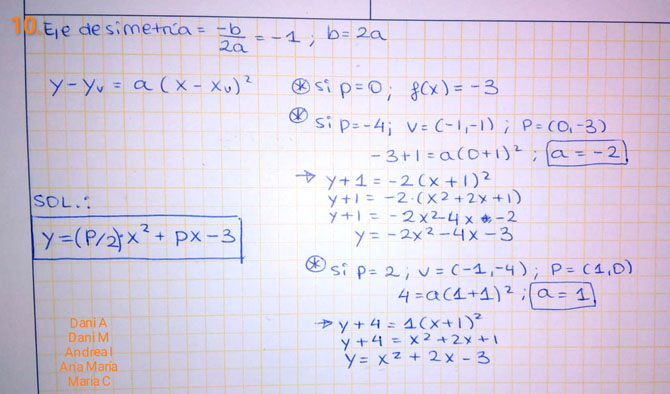 10. Eje de simetría = -b/2a = -1 ; b = 2a
y - yᵥ = a (x - xᵥ)²
⊛ si p=0; f(x) = -3
⊛ si p=-4; v = (-1,-1) ; P = (0,-3)
-3+1 = a(0+1)² ; a = -2
→ y+1 = -2(x+1)²
y+1 = -2·(x²+2x+1)
y+1 = -2x²-4x-2
y = -2x²-4x-3
SOL.:
y = (P/2)·x² + px - 3
⊛ si p=2; v = (-1,-4) ; P = (1,0)
4 = a(1+1)² ; a = 1
→ y+4 = 1(x+1)²
y+4 = x²+2x+1
y = x²+2x-3
Dani A
Dani M
Andrea I
Ana Maria
Maria C